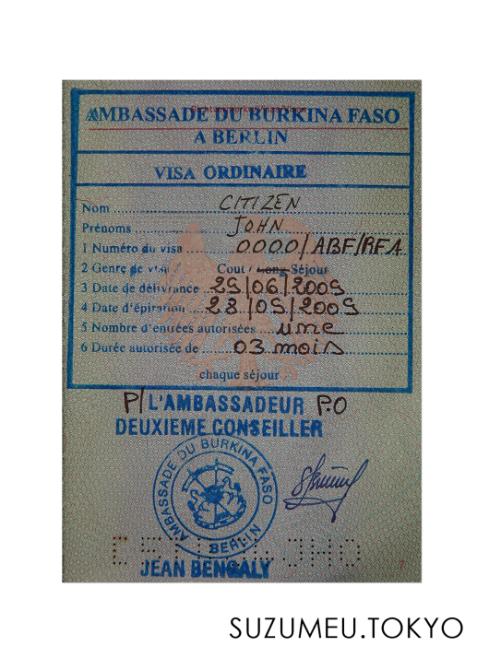 AMBASSADE DU BURKINA FASO
A BERLIN
VISA ORDINAIRE
Nom CITIZEN
Prénoms JOHN
1 Numéro du visa 0000/ABF/RFA
2 Genre de visa Court / Long Séjour
3 Date de délivrance 25/06/2009
4 Date d'épiration 28/09/2009
5 Nombre d'entrées autorisées une
6 Durée autorisée de 03 mois
chaque séjour
P/ L'AMBASSADEUR P.O
DEUXIEME CONSEILLER
AMBASSADE DU BURKINA FASO
BERLIN
JEAN BENGALY
7
SUZUMEU.TOKYO